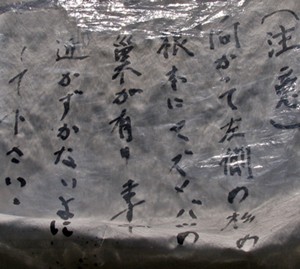 (注意)
向かって左側の杉の
根本にスズメバチの
巣が有りま
近かずかないように
して下さい。